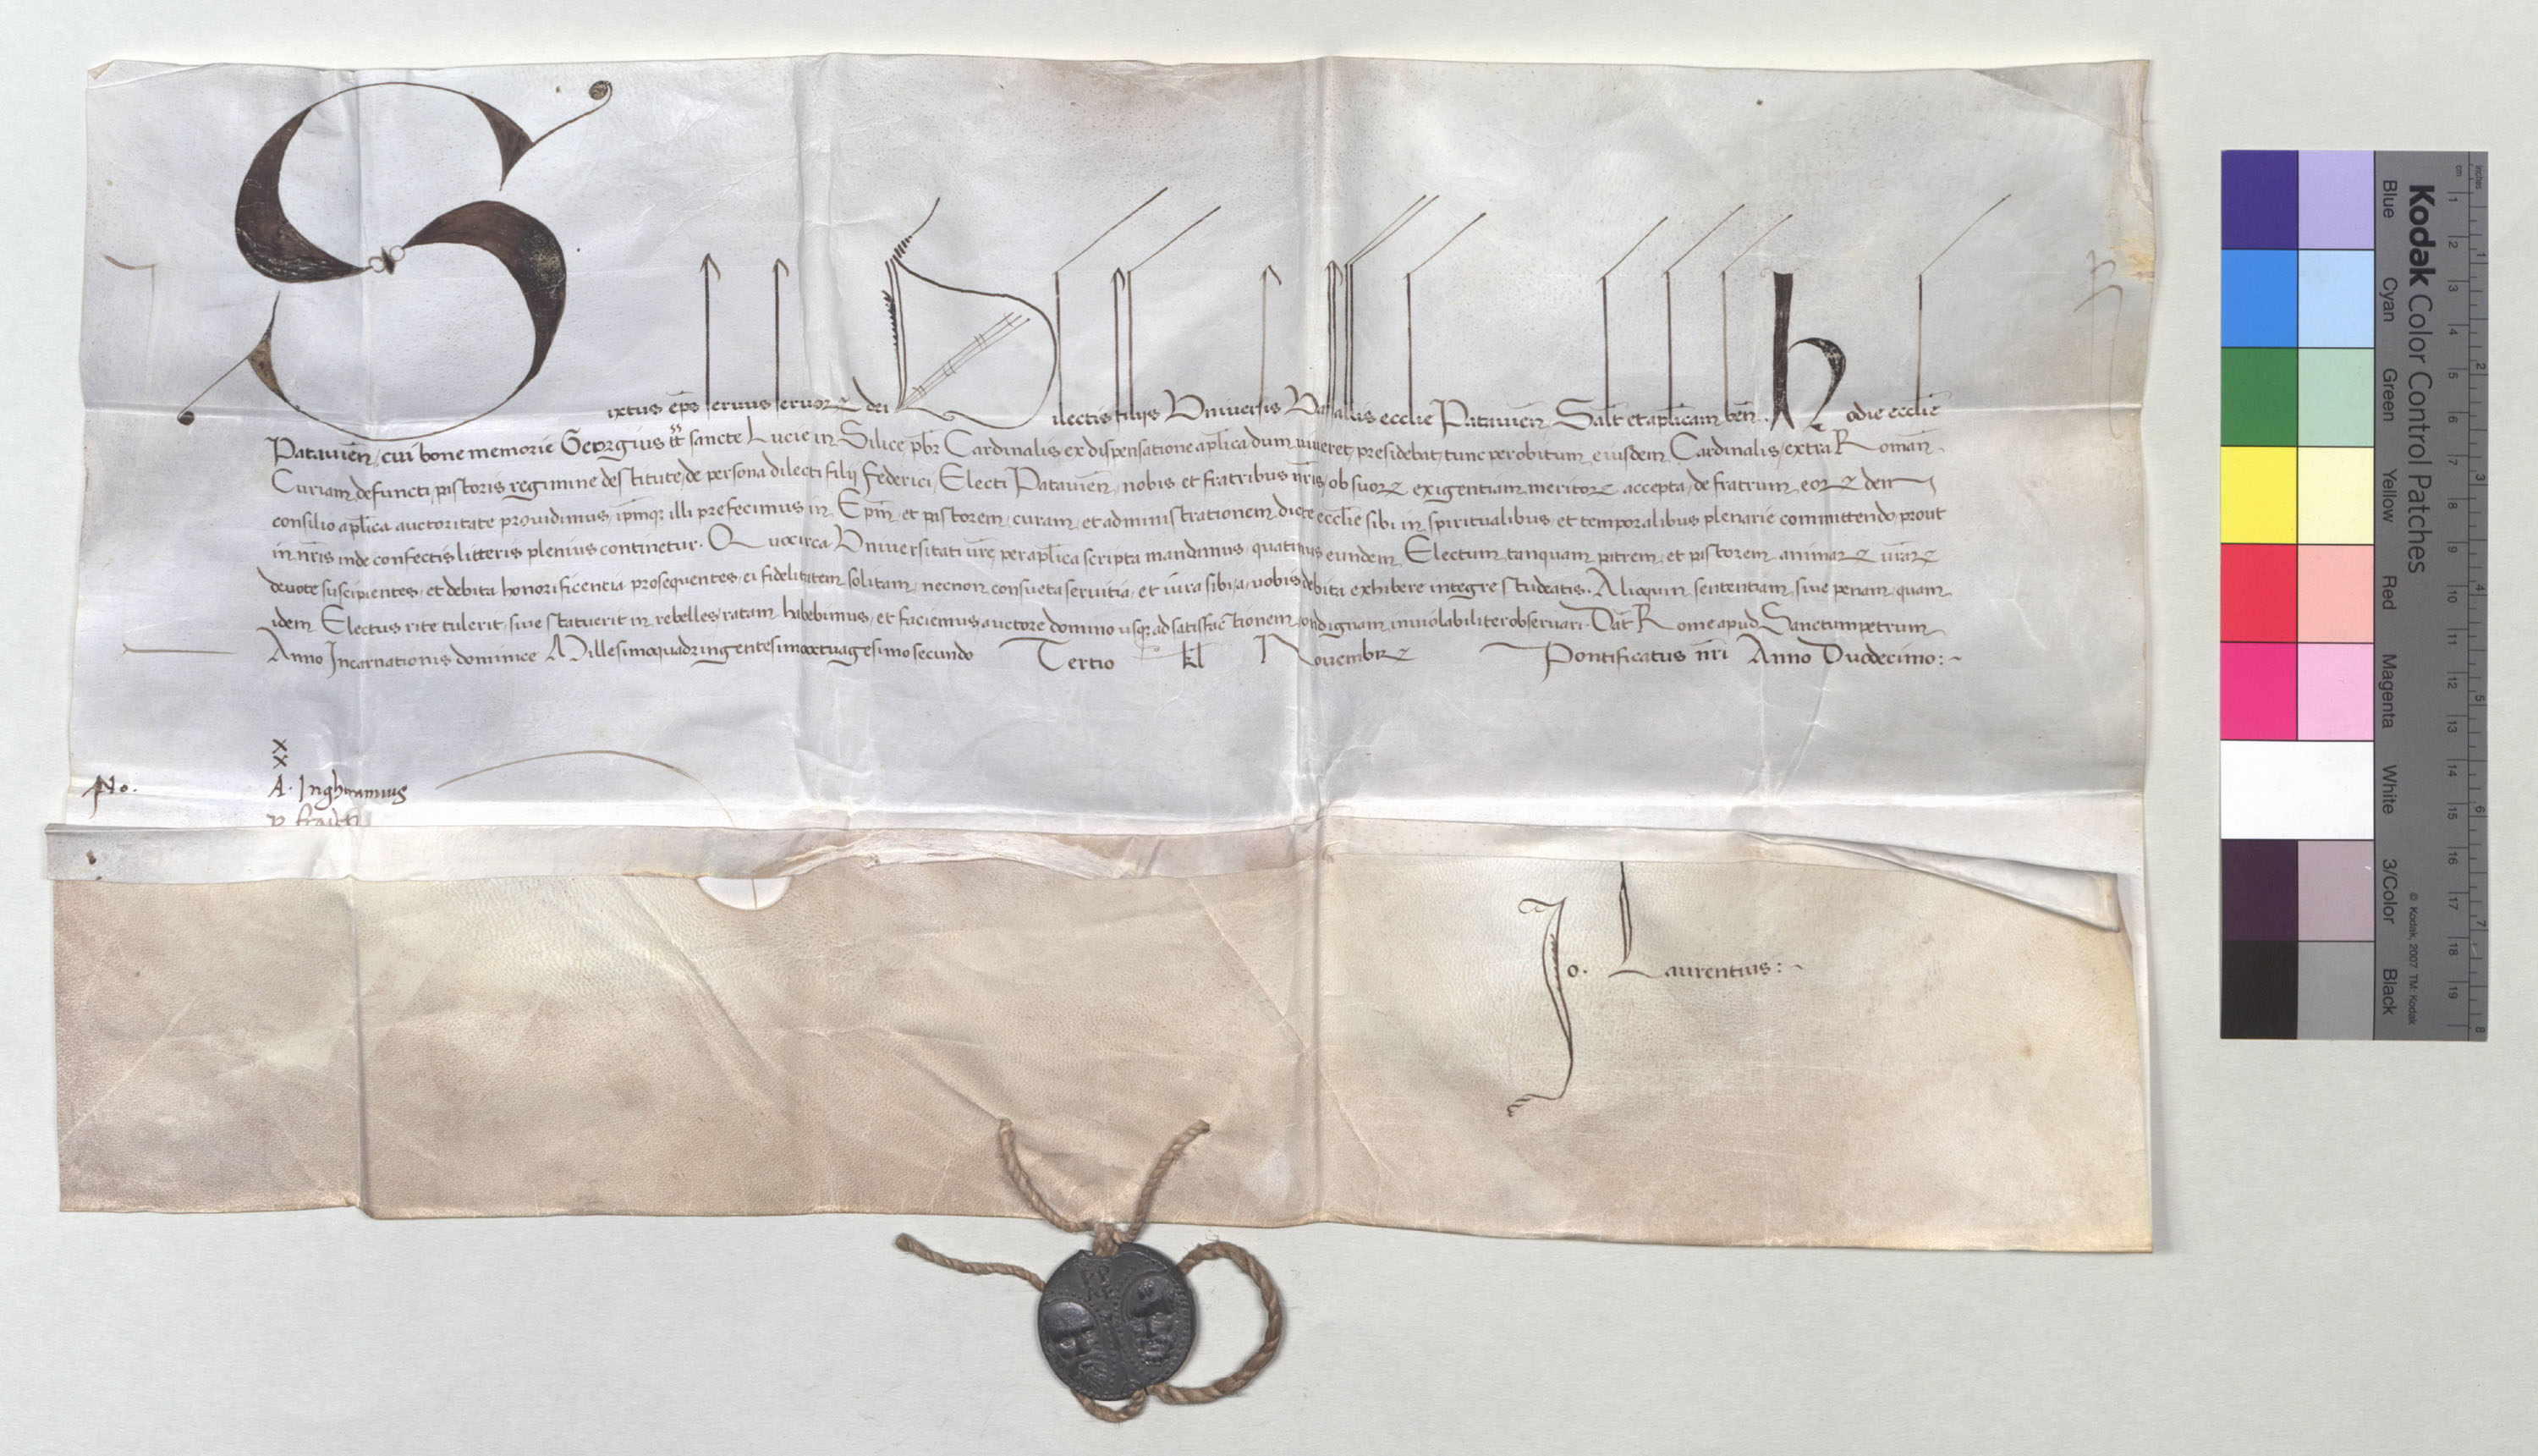 Sixtus ep̄s servus servoꝝ dei Dilectis filiis Universis Vasallis ecclīe Patavieñ Salt̄ et ap̄licam beñ. Hodie ecclīe
Patavieñ, cui bone memorie Georgius tt̄ sancte Lucie in Silice p̄br Cardinalis, ex dispensatione ap̄lica dum viveret, presidebat, tunc per obitum, eiusdem Cardinalis, extra Romañ
Curiam defuncti, pastoris regimine destitute, de persona dilecti filii Federici, Electi Patavieñ, nobis et fratribus nr̄is, ob suoꝝ exigentiam meritoꝝ accepta, de fratrum eoꝝdem
consilio ap̄lica auctoritate providimus, ip̄mqꝫ illi prefecimus in Ep̄m, et pastorem, curam, et administrationem dicte ecclīe sibi in spiritualibus, et temporalibus plenarie committendo, prout
in nr̄is inde confectis litteris plenius continetur. Quocirca Universitati vr̄e, per ap̄lica scripta mandamus, quatinus eundem Electum tanquam patrem, et pastorem animaꝝ vr̄aꝝ
devote suscipientes, et debita honorificentia prosequentes, ei fidelitatem solitam, necnon consueta servitia, et iura sibi, a, vobis debita exhibere integre studeatis. Alioquin sententiam, sive penam, quam
idem Electus rite tulerit, sive statuerit in rebelles, ratam habebimus, et faciemus auctore domino usqꝫ ad satisfactionem condignam inviolabiliter observari. Dat̄ Rome apud Sanctum petrum
Anno Incarnationis dominice Millesimoquadringentesimooctuagesimosecundo Tertio kl̄ Novembꝝ Pontificatus nr̄i Anno Duodecimo:~
x
x
No. A. Inghiramius
Jo. Laurentius:~
Kodak Color Control Patches
Blue Cyan Green Yellow Red Magenta White 3/Color Black
© Kodak, 2007 TM: Kodak
inches 1 2 3 4 5 6 7 8
cm 1 2 3 4 5 6 7 8 9 10 11 12 13 14 15 16 17 18 19